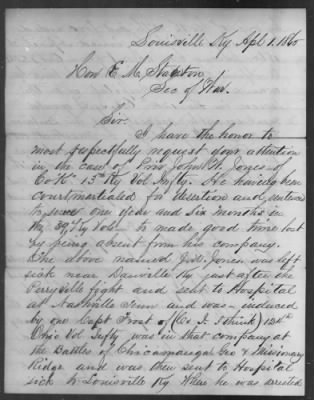 Louisville Ky Apl 1. 1865
Hon E. M. Stanton
Sec of War.
Sir.
I have the honor to
most respectfully request your attention
in the case of Priv John H. Jones of
Co "K" 13th Ky Vol Infty. He having been
courtmartialed for desertion and sentence
to serve one year and six months in
the 39th Ky Vols to made good time lost
by being absent from his company.
The above named J. H. Jones was left
sick near Danville Ky just after the
Perryville fight and sent to Hospital
at Nashville Tenn and was induced
by one Capt Frost of (Co I. I think) 124th
Ohio Vol Infty was in that company at
the Battles of Chicamauga Geo & Missionary
Ridge and was then sent to Hospital
sick to Louisville Ky Where he was arrested